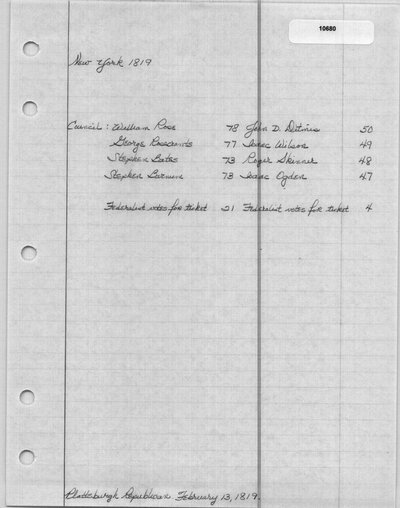 10680
New York 1819
Council: William Ross 78 John D. Ditmis 50
George Rosecrants 77 Isaac Wilson 49
Stephen Bates 73 Roger Skinner 48
Stephen Barnum 73 Isaac Ogden 47
Federalist votes for ticket 21 Federalist votes for ticket 4
Plattsburgh Republican February 13, 1819.